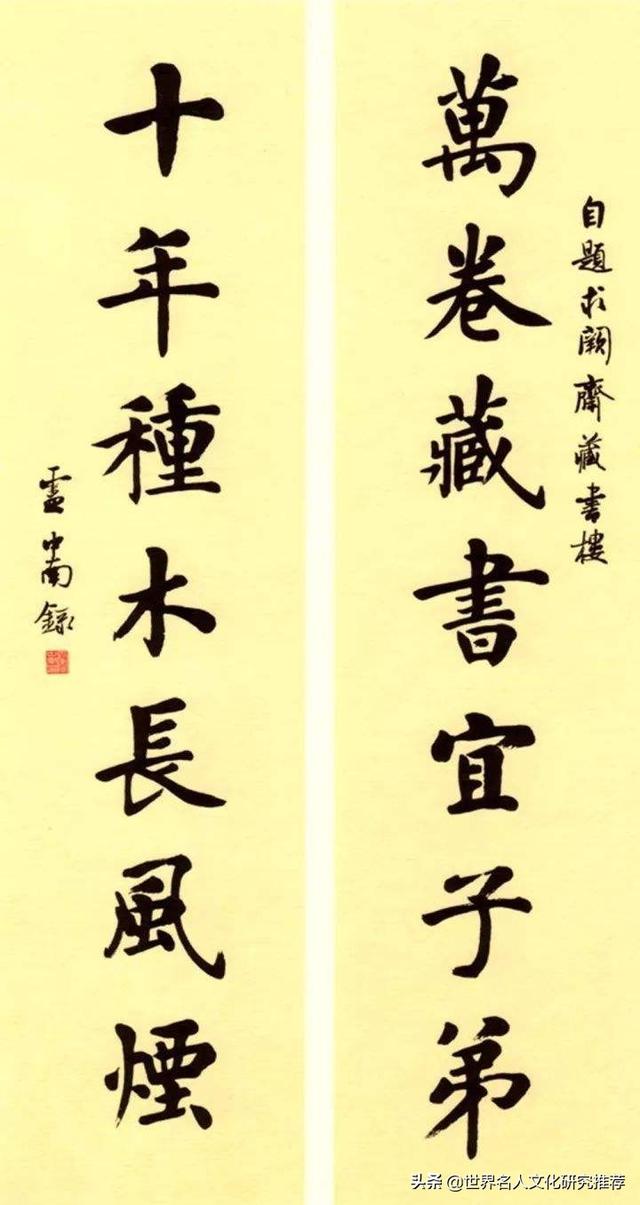 自題求闕齋藏書樓
萬卷藏書宜子弟
十年種木長風煙
盧中南錄
头条 @世界名人文化研究推荐